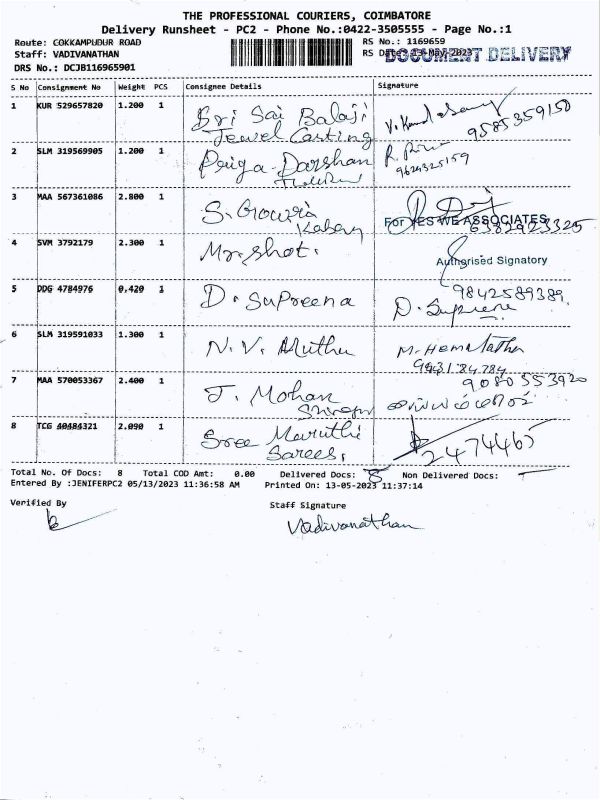 THE PROFESSIONAL COURIERS, COIMBATORE
Delivery Runsheet - PC2 - Phone No.:0422-3505555 - Page No.:1
Route: COKKAMPUDUR ROAD RS No.: 1169659
Staff: VADIVANATHAN RS Date: 13-May-2023 DOCUMENT DELIVERY
DRS No.: DCJB116965901
S No Consignment No Weight PCS Consignee Details Signature
1 KUR 529657820 1.200 1 Sri Sai Balaji 9585359150
Jewel Casting
2 SLM 319569905 1.200 1 Priya Darshan R.
9624325159
3 MAA 567361086 2.800 1 S. Gowria
For YES WE ASSOCIATES
6382923325
4 SVM 3792179 2.300 1 Mr. Shot.
Authorised Signatory
5 DDG 4784976 0.420 1 D. Supreena 9842589389.
D. Supreena
6 SLM 319591033 1.300 1 N. V. Muthu M. Hemalatha
9943184784
7 MAA 570053367 2.400 1 J. Mohan 9080553920
8 TCG 40484321 2.090 1 Sree Maruthi 2474465
Sarees.
Total No. Of Docs: 8 Total COD Amt: 0.00 Delivered Docs: 8 Non Delivered Docs:
Entered By :JENIFERPC2 05/13/2023 11:36:58 AM Printed On: 13-05-2023 11:37:14
Verified By Staff Signature
Vadivanathan